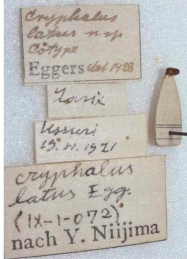 Cryphalus
latus n sp
Cotype
Eggers det 1928
Larix
Ussuri
19. VI. 1921
Cryphalus
latus Egg.
(IX-1-072)
nach Y. Niijima